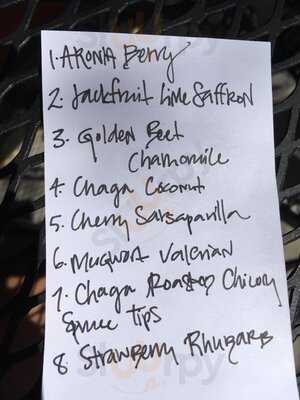 1. ARONIA Berry
2. Jackfruit Lime Saffron
3. Golden Beet
Chamomile
4. Chaga Coconut
5. Cherry Sarsaparilla
6. Mugwort Valerian
7. Chaga Roasted Chicory
Spruce Tips
8. Strawberry Rhubarb